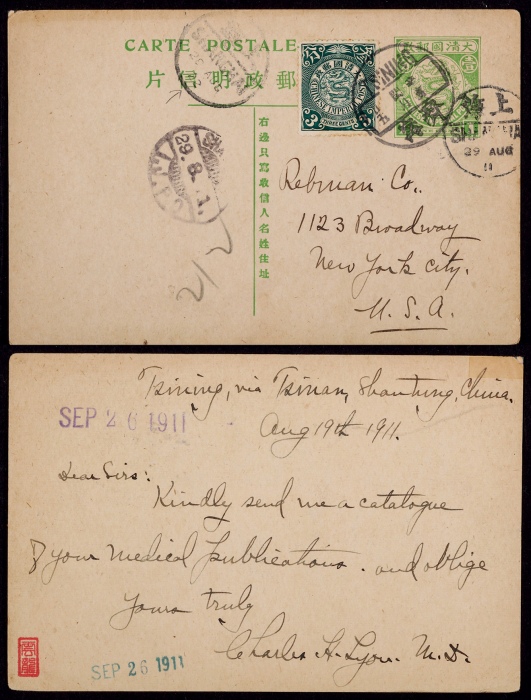 CARTE POSTALE
大清國郵政
片信明政郵
右邊只寫收信人名姓住址
THREE CENTS
3
SHANGHAI
上海
29 AUG
11
29.8.11
2/2
Rebman Co.,
1123 Broadway
New York City.
U.S.A.
Tsining, via Tsinan, Shantung, China.
Aug 19th 1911.
SEP 26 1911
Dear Sirs:
Kindly send me a catalogue
of your medical publications. and oblige
Yours truly
Charles H. Lyon. M.D.
SEP 26 1911